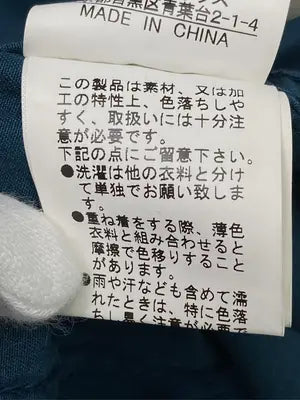 区青葉台2-1-4
MADE IN CHINA
この製品は素材、又は加
工の特性上、色落ちしや
すく、取扱いには十分注
意が必要です。
下記の点にご留意下さい。
●洗濯は他の衣料と分け
て単独でお願い致しま
す。
●重ね着をする際、薄色
衣料と組み合わせると
摩擦で色移りすること
があります。
●雨や汗なども含めて濡
れたときは、特に色落
ちし易く注意が必要で